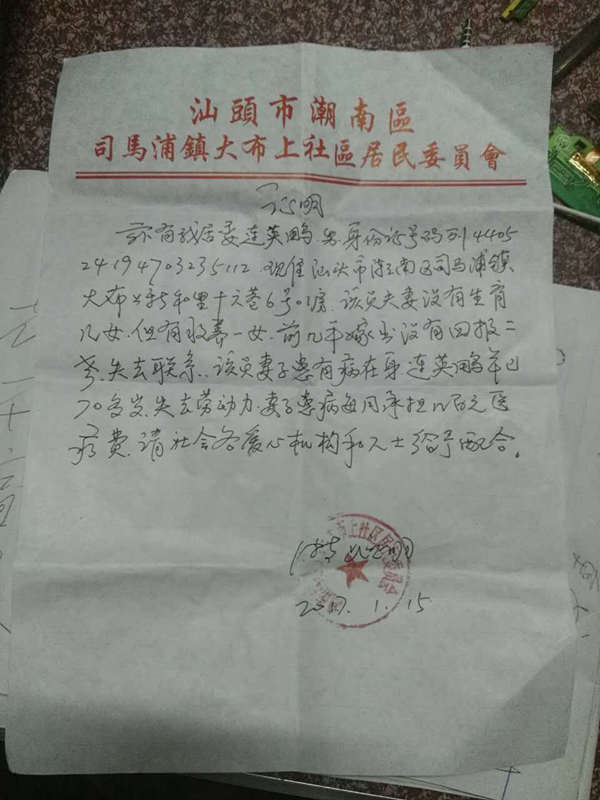 汕頭市潮南區
司馬浦鎮大布上社區居民委員會
证明
兹有我居委连英鹏,男,身份证号码到4405
24194703235112.现住汕头市潮南区司马浦镇
大布上新和里十六巷6号01房.该员夫妻没有生育
儿女.但有收养一女.前几年嫁出没有回报二
老.失去联系..该员妻子患有病在身.连英鹏年已
70多岁.失去劳动力.妻子患病每月承担几百元医
疗费.请社会各爱心机构和人士给予配合。
特此证明
布上社区居民委员会
2017.1.15